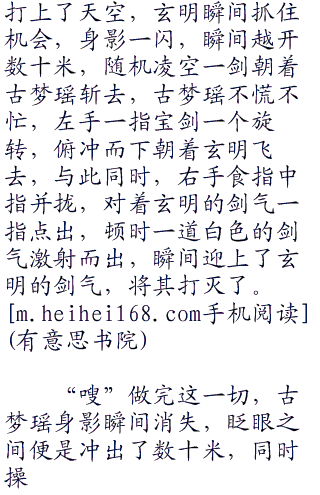 打上了天空，玄明瞬间抓住
机会，身影一闪，瞬间越开
数十米，随机凌空一剑朝着
古梦瑶斩去，古梦瑶不慌不
忙，左手一指宝剑一个旋
转，俯冲而下朝着玄明飞
去，与此同时，右手食指中
指并拢，对着玄明的剑气一
指点出，顿时一道白色的剑
气激射而出，瞬间迎上了玄
明的剑气，将其打灭了。
[m.heihei168.com手机阅读]
(有意思书院)
“嗖”做完这一切，古
梦瑶身影瞬间消失，眨眼之
间便是冲出了数十米，同时
操